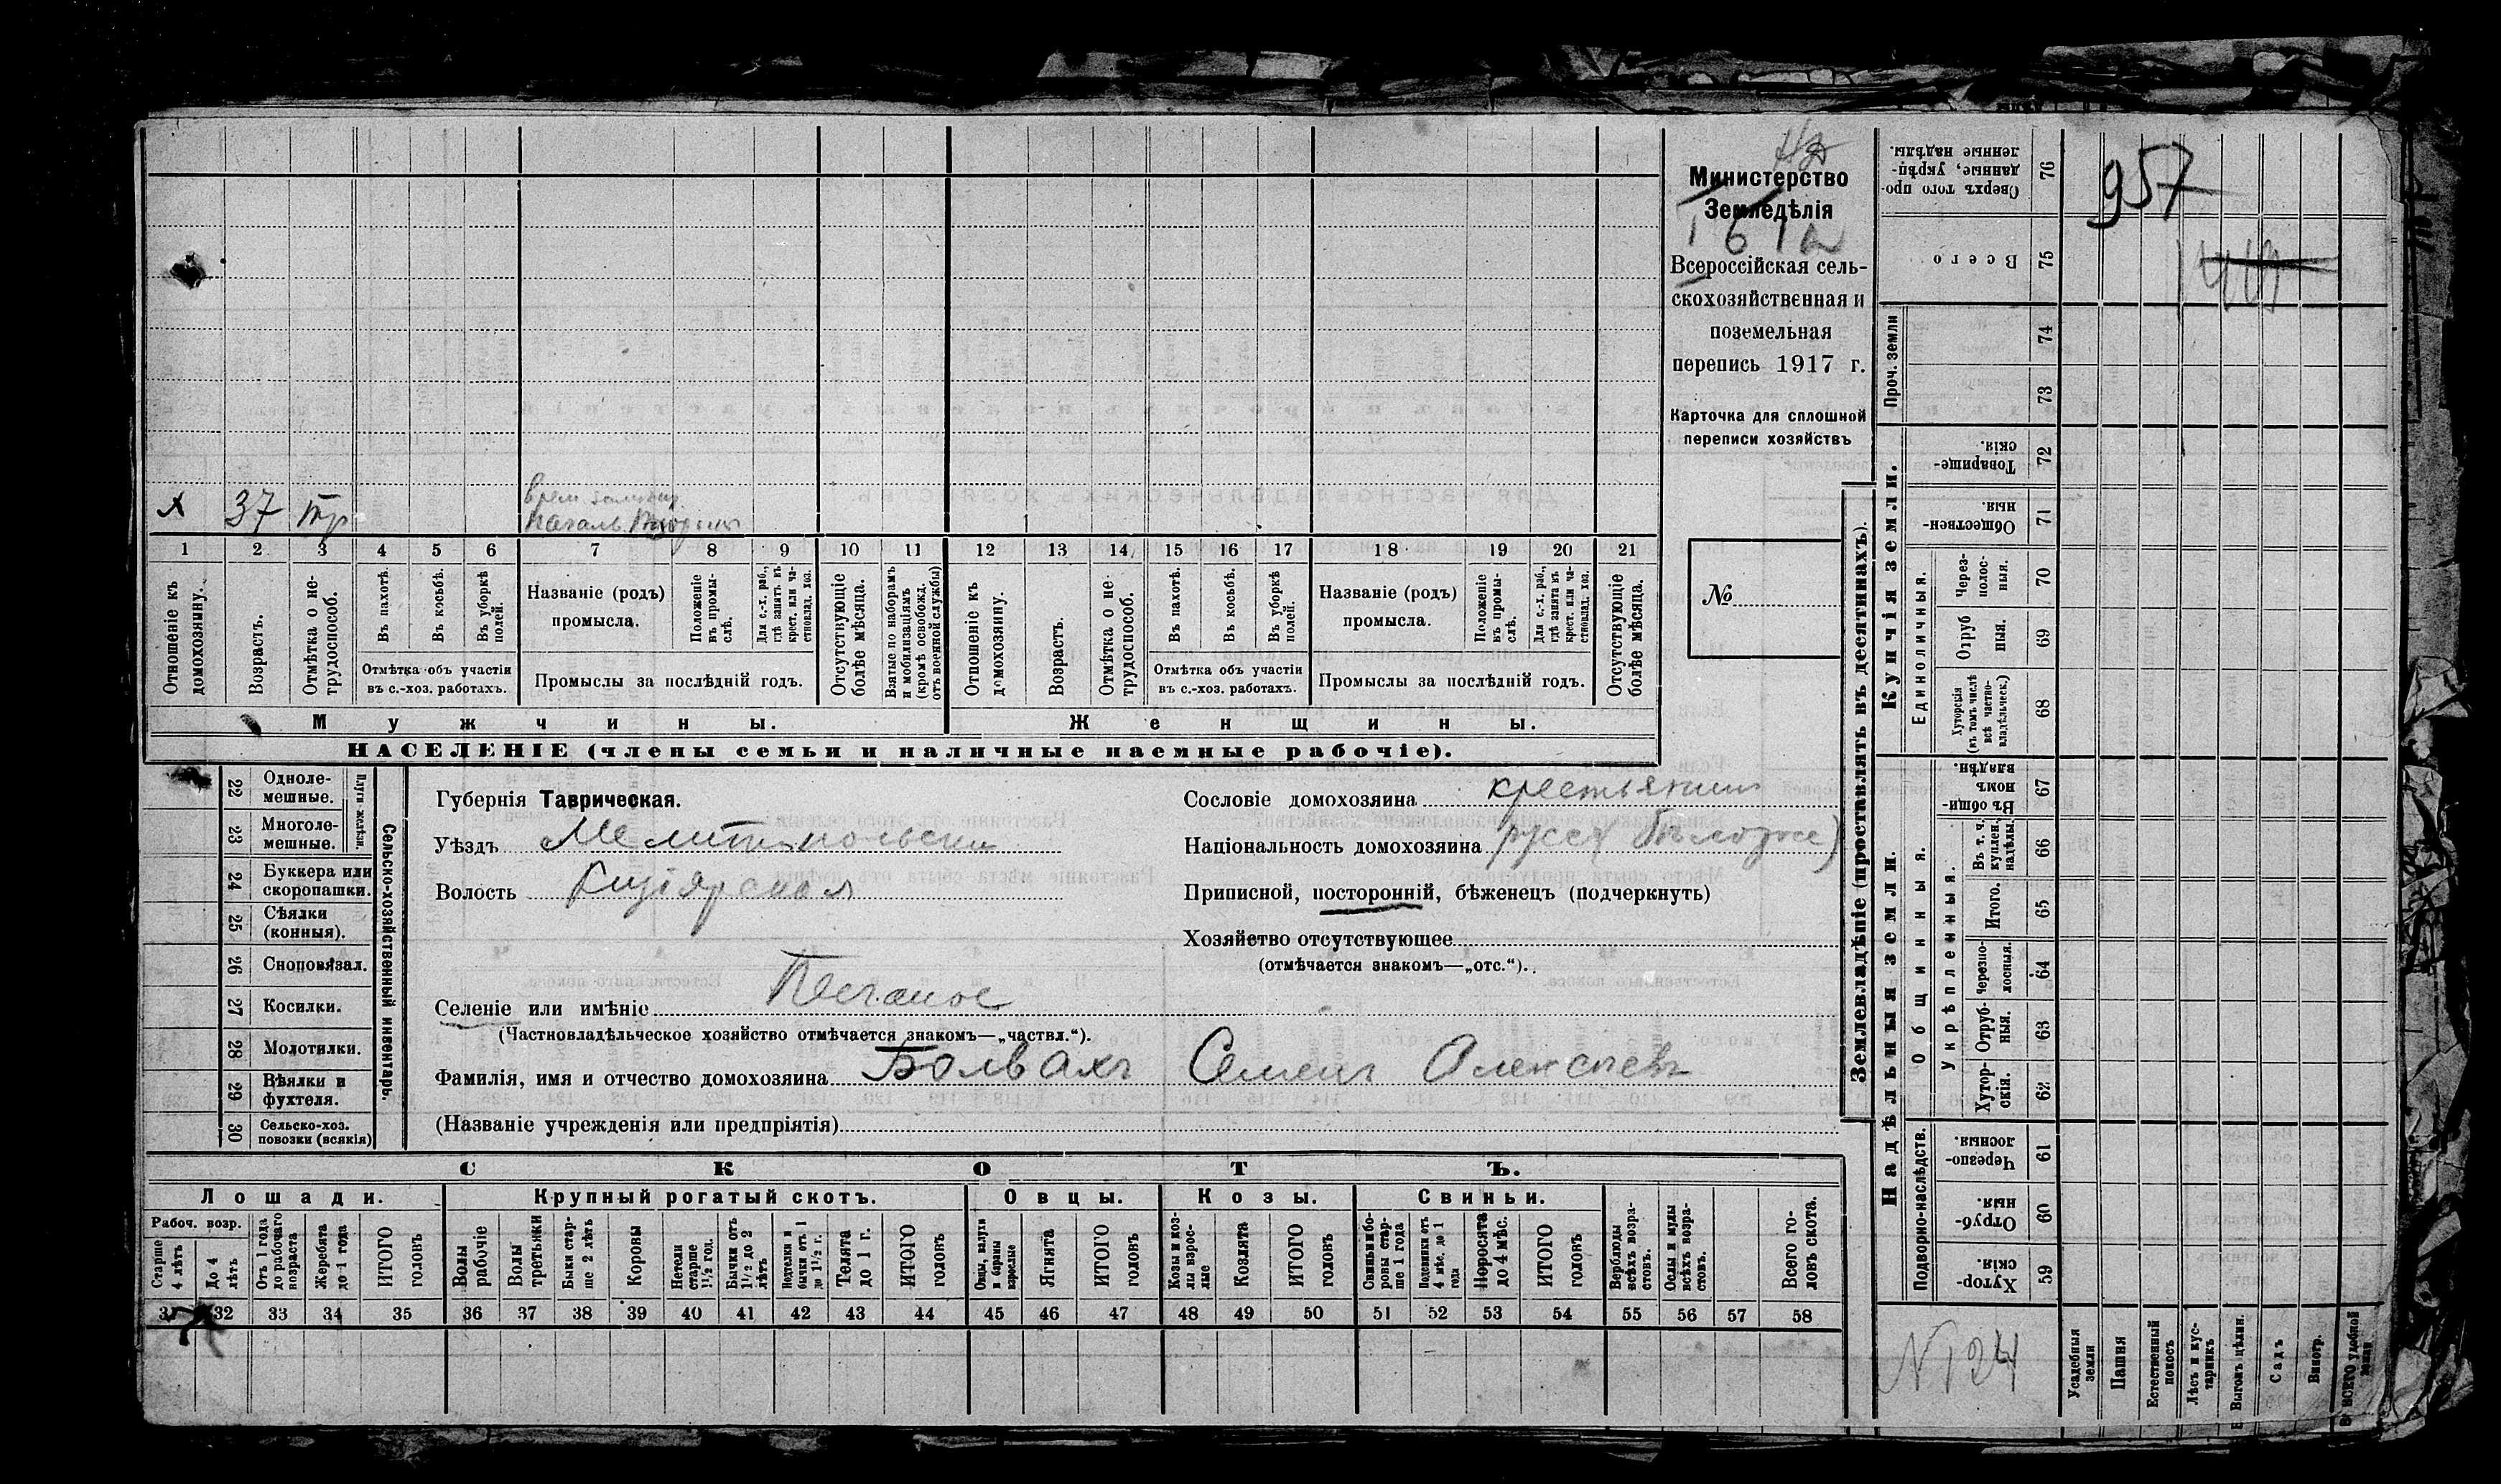 957
Министерство
Земледѣлія
Всероссійская сель-
скохозяйственная и
поземельная
перепись 1917 г.
Карточка для сплошной
переписи хозяйствъ
№
х 37 тр
1 2 3 4 5 6 7 8 9 10 11 12 13 14 15 16 17 18 19 20 21
Отношеніе къ домохозяину.
Возрастъ.
Отмѣтка о не-трудоспособ.
Въ пахотѣ.
Въ косьбѣ.
Въ уборкѣ полей.
Отмѣтка объ участіи
въ с.-хоз. работахъ.
Названіе (родъ)
промысла.
Положеніе въ промы-слѣ.
Для с.-х. раб., гдѣ занятъ въ крест. или ча-стновлад. хоз.
Промыслы за послѣдній годъ.
Отсутствующіе болѣе мѣсяца.
Взятые по наборамъ и мобилизаціямъ (кромѣ освобожд. отъ военной службы)
Отношеніе къ домохозяину.
Возрастъ.
Отмѣтка о не-трудоспособ.
Въ пахотѣ.
Въ косьбѣ.
Въ уборкѣ полей.
Отмѣтка объ участіи
въ с.-хоз. работахъ.
Названіе (родъ)
промысла.
Положеніе въ промы-слѣ.
Для с.-х. раб., гдѣ занята въ крест. или ча-стновлад. хоз.
Промыслы за послѣдній годъ.
Отсутствующіе болѣе мѣсяца.
Мужчины.
Женщины.
НАСЕЛЕНІЕ (члены семьи и наличные наемные рабочіе).
22 Одноле-мешные.
23 Многоле-мешные.
Плуги желѣзн.
24 Буккера или скоропашки.
25 Сѣялки (конныя).
26 Сноповязал.
27 Косилки.
28 Молотилки.
29 Вѣялки и фухтеля.
30 Сельско-хоз. повозки (всякія)
Сельско-хозяйственный инвентарь.
Губернія Таврическая.
Уѣздъ Мелитопольскій
Волость Кизіярская
Селеніе или имѣніе Песчаное
(Частновладѣльческое хозяйство отмѣчается знакомъ—„частвл.“).
Сословіе домохозяина крестьянин
Національность домохозяина русск
Приписной, посторонній, бѣженецъ (подчеркнуть)
Хозяйство отсутствующее
(отмѣчается знакомъ—„отс.“).
Фамилія, имя и отчество домохозяина Болвахъ Семенъ Алексѣевъ
(Названіе учрежденія или предпріятія)
СКОТЪ.
Лошади.
Крупный рогатый скотъ.
Овцы.
Козы.
Свиньи.
Рабоч. возр.
Старше 4 лѣтъ
До 4 лѣтъ
Отъ 1 года до рабочаго возраста
Жеребята до 1 года
ИТОГО головъ
Волы рабочіе
Волы третьяки
Быки стар-ше 2 лѣтъ
Коровы
Нетели старше 1½ год.
Бычки отъ 1½ до 2 лѣтъ
Подтелки и бычки отъ 1 до 1½ г.
Телята до 1 г.
ИТОГО головъ
Овцы, валухи и бараны взрослые
Ягнята
ИТОГО головъ
Козы и коз-лы взрос-лые
Козлята
ИТОГО головъ
Свиньи и бо-ровы стар-ше 1 года
Подсвинки отъ 4 мѣс. до 1 года
Поросята до 4 мѣс.
ИТОГО головъ
Верблюды всѣхъ возра-стовъ.
Ослы и мулы всѣхъ возра-стовъ.
Всего го-ловъ скота.
31 32 33 34 35 36 37 38 39 40 41 42 43 44 45 46 47 48 49 50 51 52 53 54 55 56 57 58
Землевладѣніе (проставлять въ десятинахъ).
Сверхъ того про-данные, укрѣп-ленные надѣлы. 76
Всего 75
Проч. земли
74
73
Купчія земли.
Товарище-скія. 72
Обществен-ныя. 71
Единоличныя.
Через-полос-ныя. 70
Отруб ныя. 69
Хуторскія (въ томъ числѣ всѣ частно-владѣльческ.) 68
Надѣльныя земли.
Общинныя.
Въ общин-номъ владѣн. 67
Укрѣпленныя.
Въ т. ч. куплен. надѣлы. 66
Итого. 65
Черезпо-лосныя. 64
Отруб-ныя. 63
Хутор-скія. 62
Подворно-наслѣдств.
Черезпо-лосныя. 61
Отруб-ныя. 60
Хутор-скія. 59
N 124
Усадебныя земли
Пашня
Естественный покосъ
Лѣсъ и кус-тарникъ
Выгонъ цѣлин.
Садъ
Виногр.
ВСЕГО удобной земли